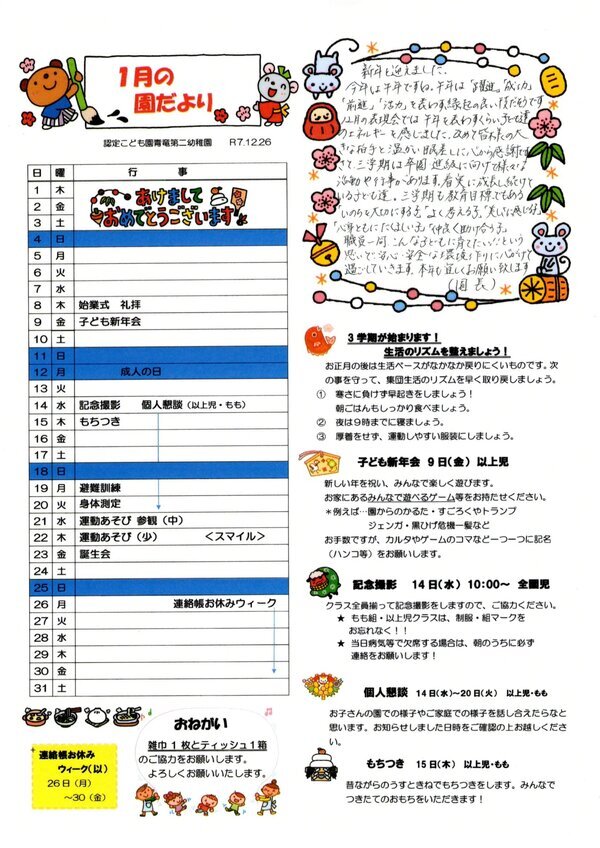 1月の
園だより
認定こども園青竜第二幼稚園 R7.12.26
新年を迎えました。
今年は午年ですね。午年は「躍進」「成功」
「前進」「活力」を表わす縁起の良い演だそうです
12月の表現会では午年を表わすくらい子ども達
のエネルギーを感じました。改めて皆様の大
きな拍手と温かい眼差しに心から感謝です
さて、三学期は卒園 進級に向けて様々な
活動や行事があります。着実に成長し続けて
いる子ども達。三学期も教育目標でもある
「いのちを大切にする子」「よく考える子」「美しいに感じる子」
「心身ともにたくましい子」「仲良く助け合う子」
職員一同 こんな子どもに育てたい!という
思いで安心・安全な環境作りに心がけて
過ごしていきます。本年も宜しくお願い致します
(園長)
日 曜 行 事
1 木 あけまして
2 金 おめでとうございます
3 土
4 日
5 月
6 火
7 水
8 木 始業式 礼拝
9 金 子ども新年会
10 土
11 日
12 月 成人の日
13 火
14 水 記念撮影 個人懇談(以上児・もも)
15 木 もちつき
16 金
17 土
18 日
19 月 避難訓練
20 火 身体測定
21 水 運動あそび 参観(中)
22 木 運動あそび(少) <スマイル>
23 金 誕生会
24 土
25 日
26 月 連絡帳お休みウィーク
27 火
28 水
29 木
30 金
31 土
3学期が始まります!
生活のリズムを整えましょう!
お正月の後は生活ペースがなかなか戻りにくいものです。次
の事を守って、集団生活のリズムを早く取り戻しましょう。
① 寒さに負けず早起きをしましょう!
朝ごはんもしっかり食べましょう。
② 夜は9時までに寝ましょう。
③ 厚着をせず、運動しやすい服装にしましょう。
子ども新年会 9日(金) 以上児
新しい年を祝い、みんなで楽しく遊びます。
お家にあるみんなで遊べるゲーム等をお持たせください。
*例えば…園からのかるた・すごろくやトランプ
ジェンガ・黒ひげ危機一髪など
お手数ですが、カルタやゲームのコマなど一つ一つに記名
(ハンコ等)をお願いします。
記念撮影 14日(水) 10:00~ 全園児
クラス全員揃って記念撮影をしますので、ご協力ください。
★ もも組・以上児クラスは、制服・組マークを
お忘れなく!!
★ 当日病気等で欠席する場合は、朝のうちに必ず
連絡をお願いします!
個人懇談 14日(水)~20日(火) 以上児・もも
お子さんの園での様子やご家庭での様子を話し合えたらなと
思います。お知らせしました日時をご確認の上お越しくださ
い。
もちつき 15日(木) 以上児・もも
昔ながらのうすときねでもちつきをします。みんなで
つきたてのおもちをいただきます!
連絡帳お休み
ウィーク(以)
26日(月)
~30(金)
おねがい
雑巾1枚とティッシュ1箱
のご協力をお願いします。
よろしくお願いいたします。